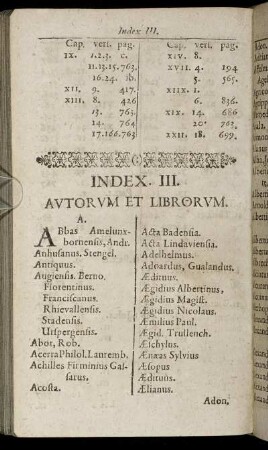 Index III.
Cap. verſ. pag.
IX. 1.2.3. c.
11.13.15.763.
16.24. ib.
XII. 9. 417.
XIII. 8. 426
13. 763.
14. 764
17.166.763
Cap. verſ. pag.
XIV. 8.
XVII. 4. 194
5. 565.
XIIX. 1.
6. 836.
XIX. 14. 686
20. 763
XXII. 18. 699.
INDEX. III.
AVTORVM ET LIBRORVM.
A.
ABbas Amelunx-
bornenſis, Andr.
Anhuſanus. Stengel.
Antiquus.
Augienſis. Berno.
Florentinus.
Franciſcanus.
Rhievallenſis.
Stadenſis.
Urſpergenſis.
Abot, Rob.
Acerra Philol. Lauremb.
Achilles Firminius Gaſ-
ſarus.
Acoſta.
Acta Badenſia.
Acta Lindavienſia.
Adelhelmus.
Adoardus, Gualandus.
Ædituus.
Ægidius Albertinus,
Ægidius Magiſt.
Ægidius Nicolaus.
Æmilius Paul.
Ægid. Truſlench.
Æſchylus.
Æneas Sylvius
Æſopus
Ædituus
Ælianus.
Adon,